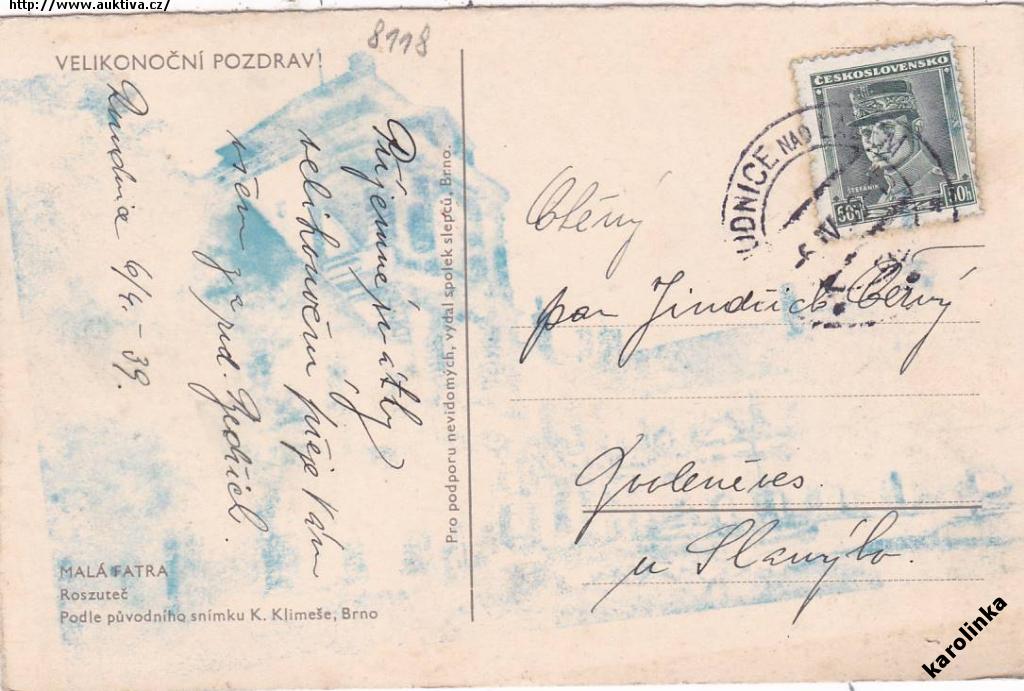 http://www.auktiva.cz/
8118
VELIKONOČNÍ POZDRAV!
Roudnice 6/4. - 39.
Příjemné svátky
velikonoční přeje Vám
všem
MALÁ FATRA
Roszuteč
Podle původního snímku K. Klimeše, Brno
Pro podporu nevidomých, vydal spolek slepců, Brno.
ČESKOSLOVENSKO
ŠTEFÁNIK
50h 50h
UDNICE NAD
Ctěný
pan Jindřich Černý
u Slaného.
karolinka